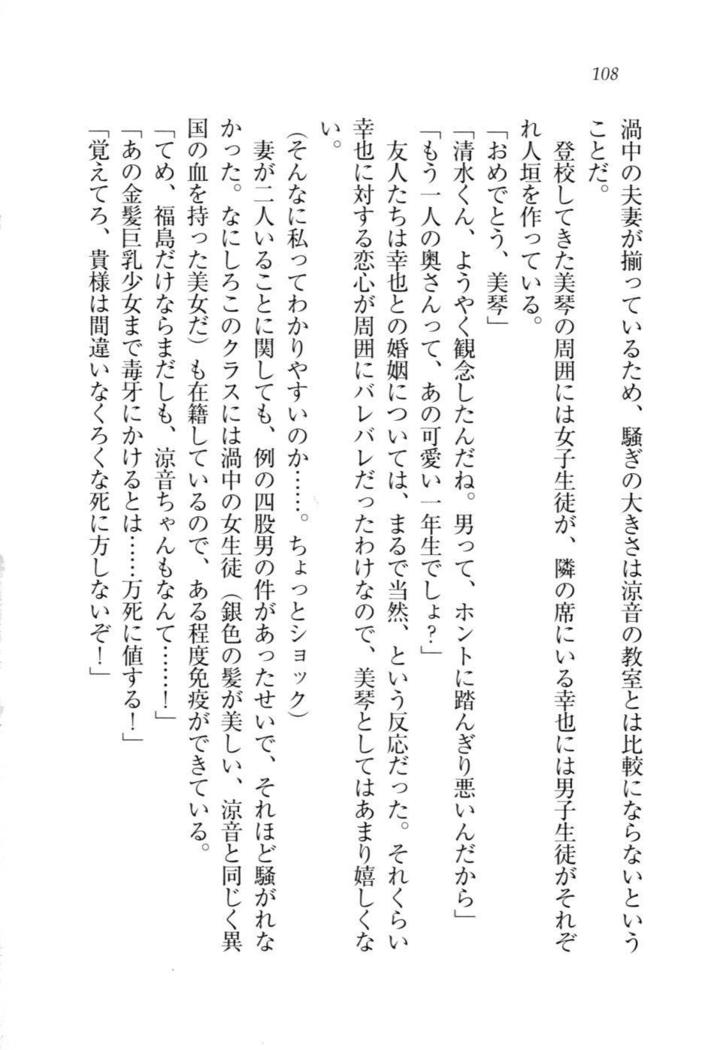 108
渦中の夫妻が揃っているため、騒ぎの大きさは涼音の教室とは比較にならないという
ことだ。
登校してきた美琴の周囲には女子生徒が、隣の席にいる幸也には男子生徒がそれぞ
れ人垣を作っている。
「おめでとう、美琴」
「清水くん、ようやく観念したんだね。男って、ホントに踏んぎり悪いんだから」
「もう一人の奥さんって、あの可愛い一年生でしょ?」
友人たちは幸也との婚姻については、まるで当然、という反応だった。それくらい
幸也に対する恋心が周囲にバレバレだったわけなので、美琴としてはあまり嬉しくな
い。
(そんなに私ってわかりやすいのか……。ちょっとショック)
妻が二人いることに関しても、例の四股男の件があったせいで、それほど騒がれな
かった。なにしろこのクラスには渦中の女生徒(銀色の髪が美しい、涼音と同じく異
国の血を持った美女だ)も在籍しているので、ある程度免疫ができている。
「てめ、福島だけならまだしも、涼音ちゃんもなんて……!」
「あの金髪巨乳少女まで毒牙にかけるとは……万死に値する!」
「覚えてろ、貴様は間違いなくろくな死に方しないぞ!」